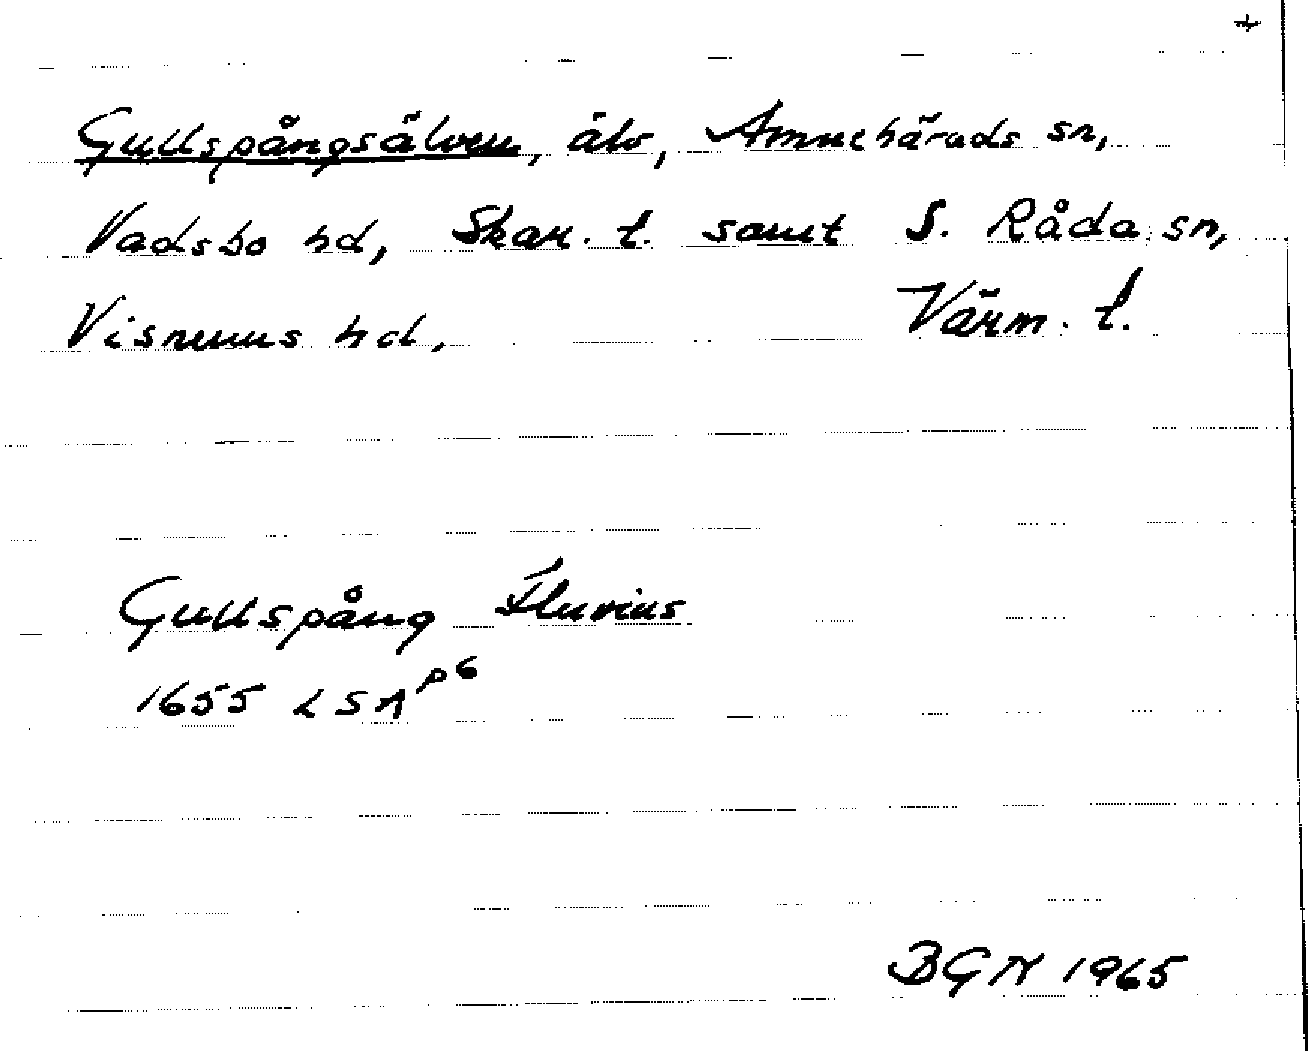 +
Gullspångsälven, älv, Amnehärads sn,
Vadsbo hd, Skar. l. samt S. Råda sn,
Visnums hd, Värm. l.
Gullspång Fluvius
1655 LSA p6
BGN 1965